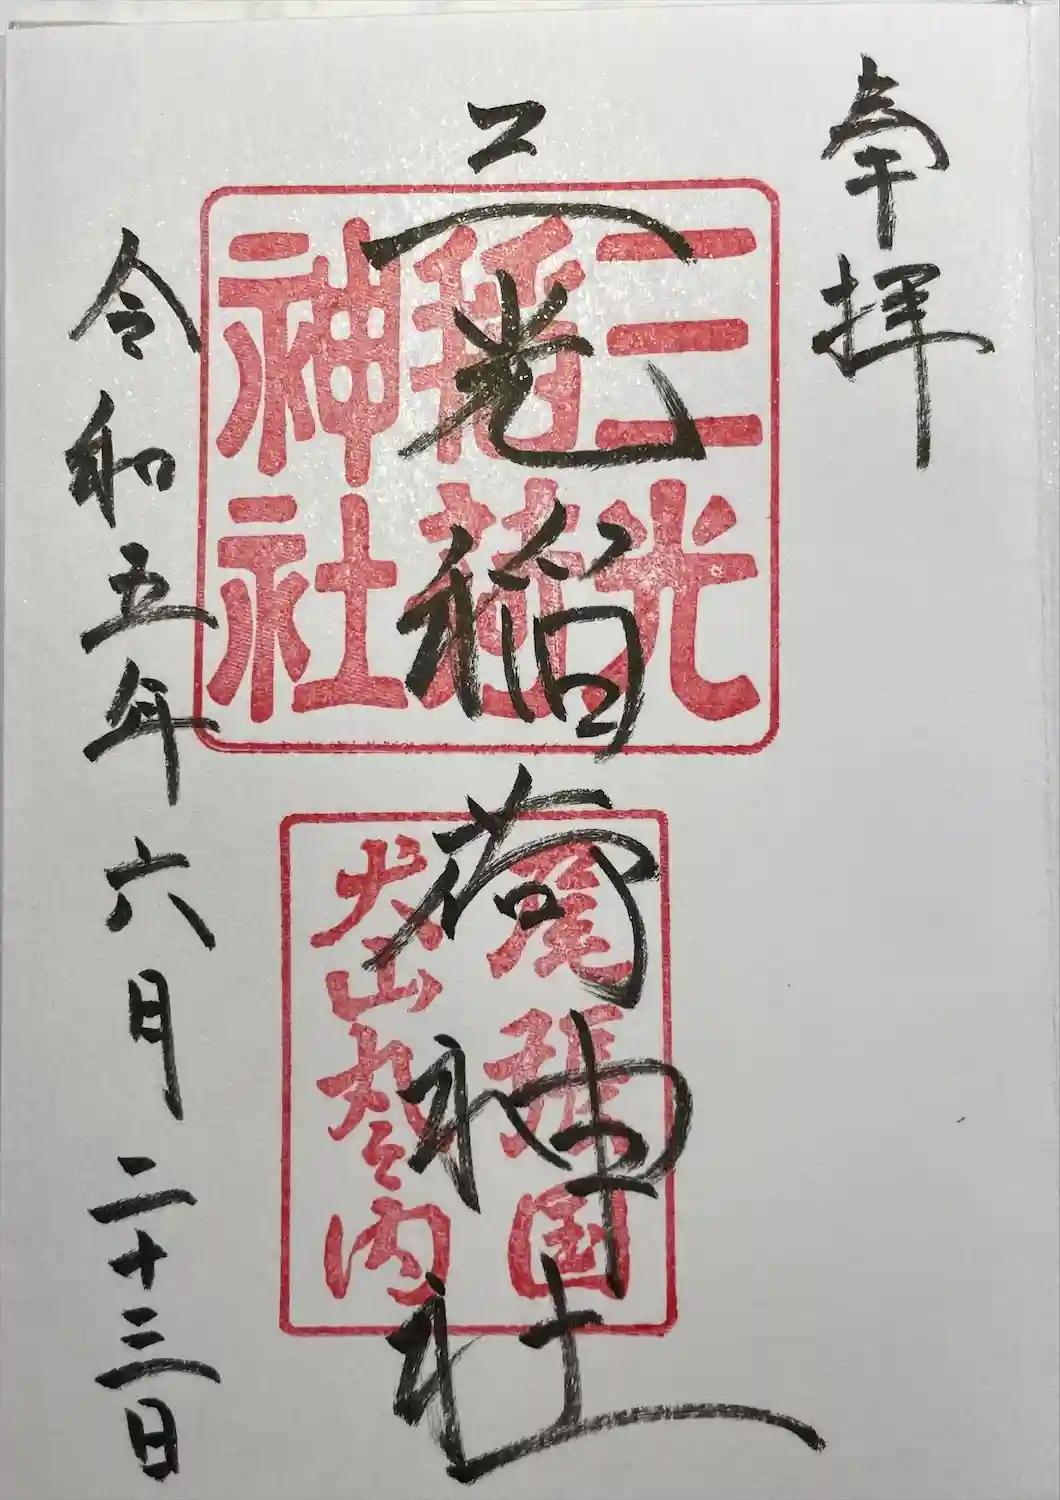 奉拝
三光稲荷神社
令和五年六月二十三日
三光
稲荷
神社
尾張国
犬山丸之内